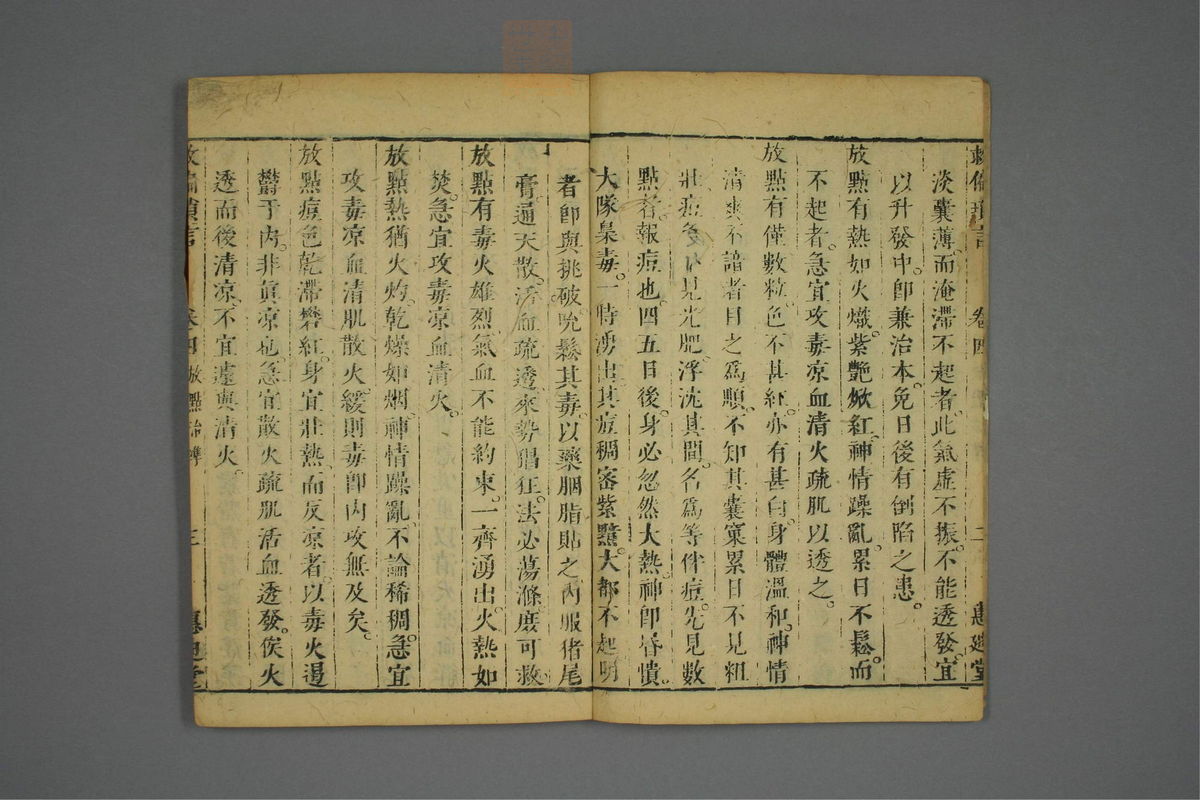 救偏瑣言 卷四 二 惠迪堂
淡囊薄而淹滯不起者此氣虛不振不能透發宜
以升發中卽兼治本免日後有倒陷之患
放點有熱如火熾紫艷焮紅神情躁亂累日不鬆而
不起者急宜攻毒凉血清火疏肌以透之
放點有僅數粒色不甚紅亦有甚白身體溫和神情
清爽不諳者目之爲順不知其囊窠累日不見粗
壯痘色不見光肥浮沈其間名爲等伴痘先見數
點名報痘也四五日後身必忽然大熱神卽昏憒
大隊梟毒一時湧出其痘稠密紫黶大都不起明
者卽與挑破吮鬆其毒以藥胭脂貼之內服猪尾
膏逼天散活血疏透來勢猖狂法必蕩滌庶可救
放點有毒火雄烈氣血不能約束一齊湧出火熱如
焚急宜攻毒凉血清火
放點熱猶火灼乾燥如烟神情躁亂不論稀稠急宜
攻毒凉血清肌散火緩則毒卽內攻無及矣
放點痘色乾滯礬紅身宜壯熱而反凉者以毒火遏
鬱于內非眞凉也急宜散火疏肌活血透發俟火
透而後清凉不宜遽與清火
救偏瑣言 卷四 放點治辨 三 惠迪堂